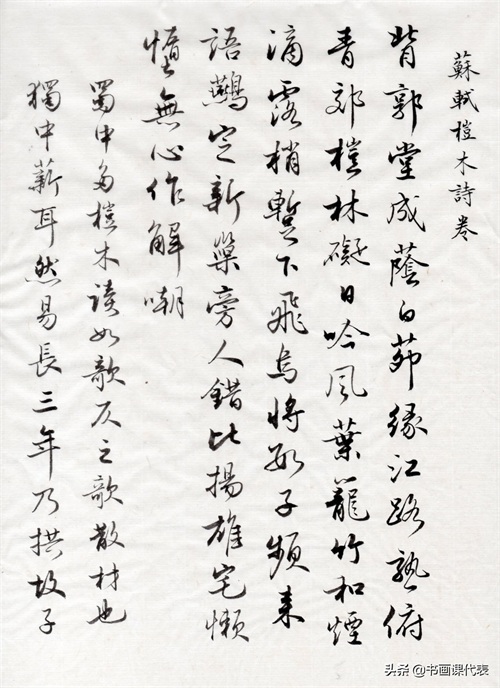 蘇軾榿木詩卷
背郭堂成蔭白茆緣江路熟俯
青郊榿林礙日吟風葉籠竹和煙
滴露梢暫下飛烏將數子頻來
語鷰定新巢旁人錯比揚雄宅懶
惰無心作解嘲
蜀中多榿木讀如欹仄之欹散材也
獨中薪耳然易長三年乃拱故子
头条 @书画课代表